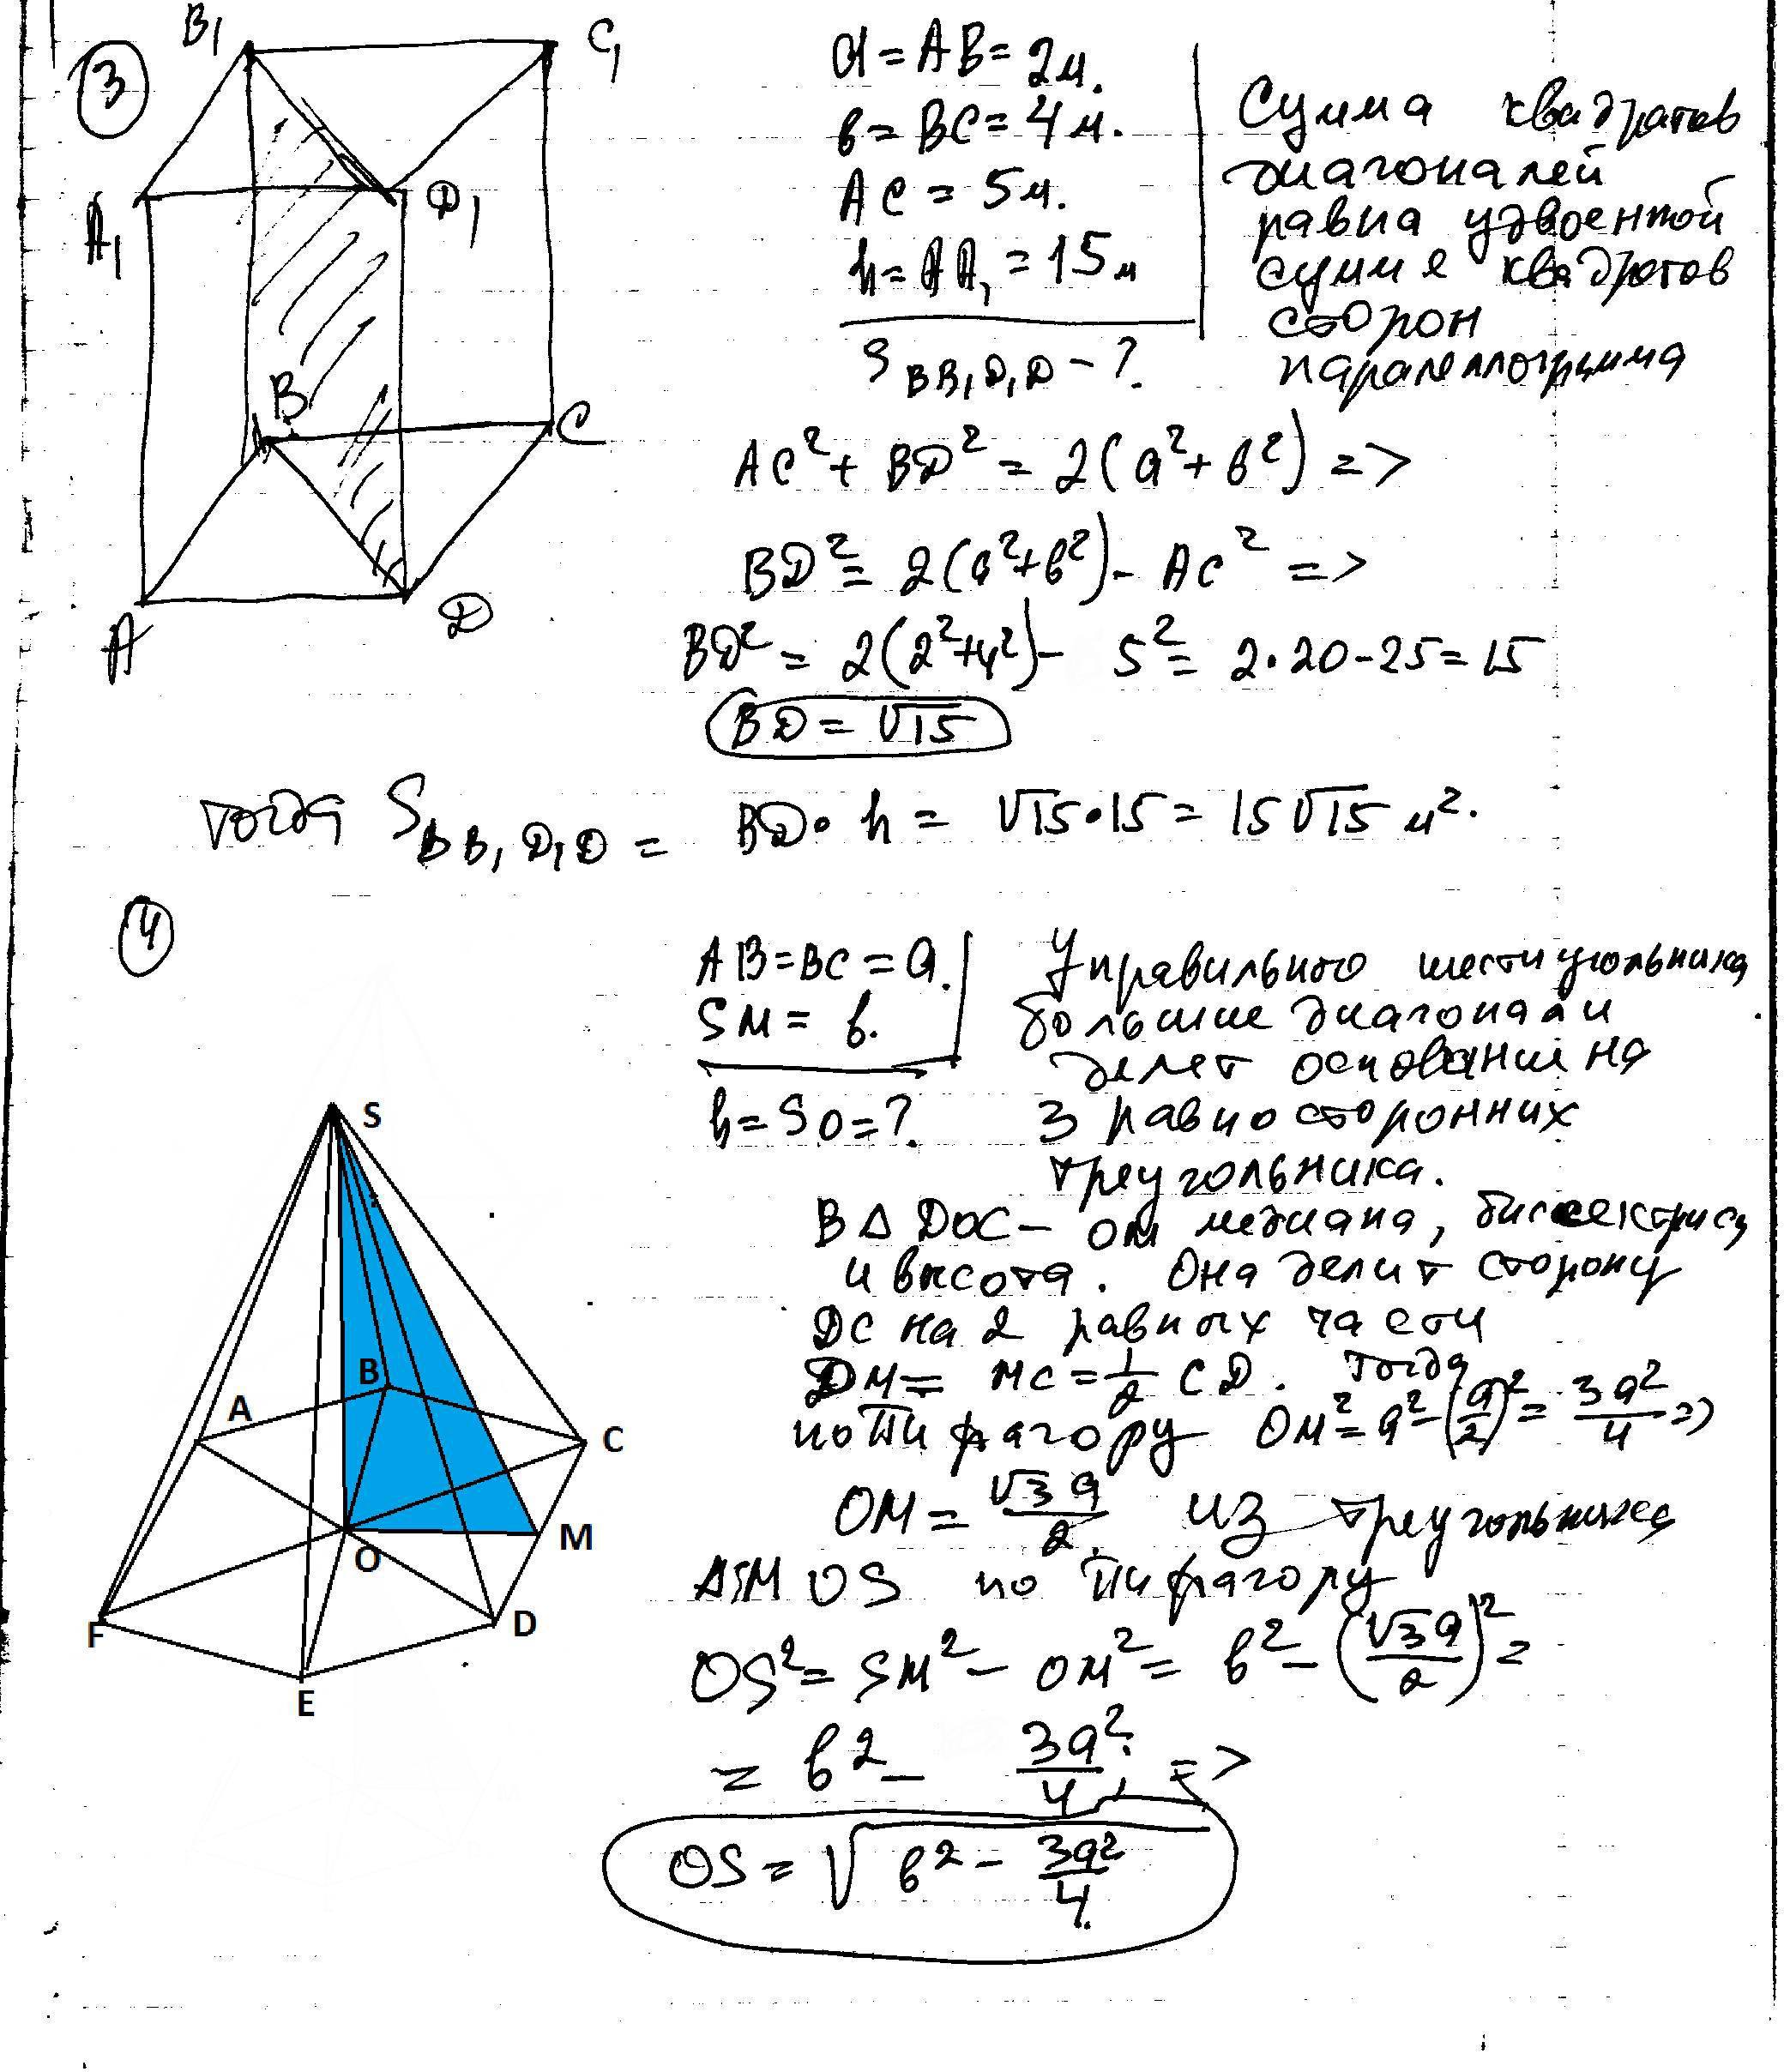 3
B₁
C₁
A₁
D₁
B
C
A
D
a = AB = 2м.
в = BC = 4м.
AC = 5м.
h = AA₁ = 15м
S BB₁D₁D - ?
Сумма квадратов
диагоналей
равна удвоенной
сумме квадратов
сторон
паралеллограмма
AC² + BD² = 2(a² + в²) =>
BD² = 2(a² + в²) - AC² =>
BD² = 2(2² + 4²) - 5² = 2·20 - 25 = 15
BD = √15
тогда S BB₁D₁D = BD · h = √15 · 15 = 15√15 м².
4
AB = BC = a.
SM = в.
h = SO = ?
У правильного шестиугольника
большие диагонали
делят основание на
3 равносторонних
треугольника.
В △ DOC - OM медиана, биссектриса
и высота. Она делит сторону
DC на 2 равных части
DM = MC = 1/2 CD. Тогда
по Пифагору OM² = a² - (a/2)² = 3a²/4 =>
OM = √3a/2. из треугольника
△SMOS по Пифагору
OS² = SM² - OM² = в² - (√3a/2)² =
= в² - 3a²/4 =>
OS = √(в² - 3a²/4)
S
B
A
C
M
O
D
F
E